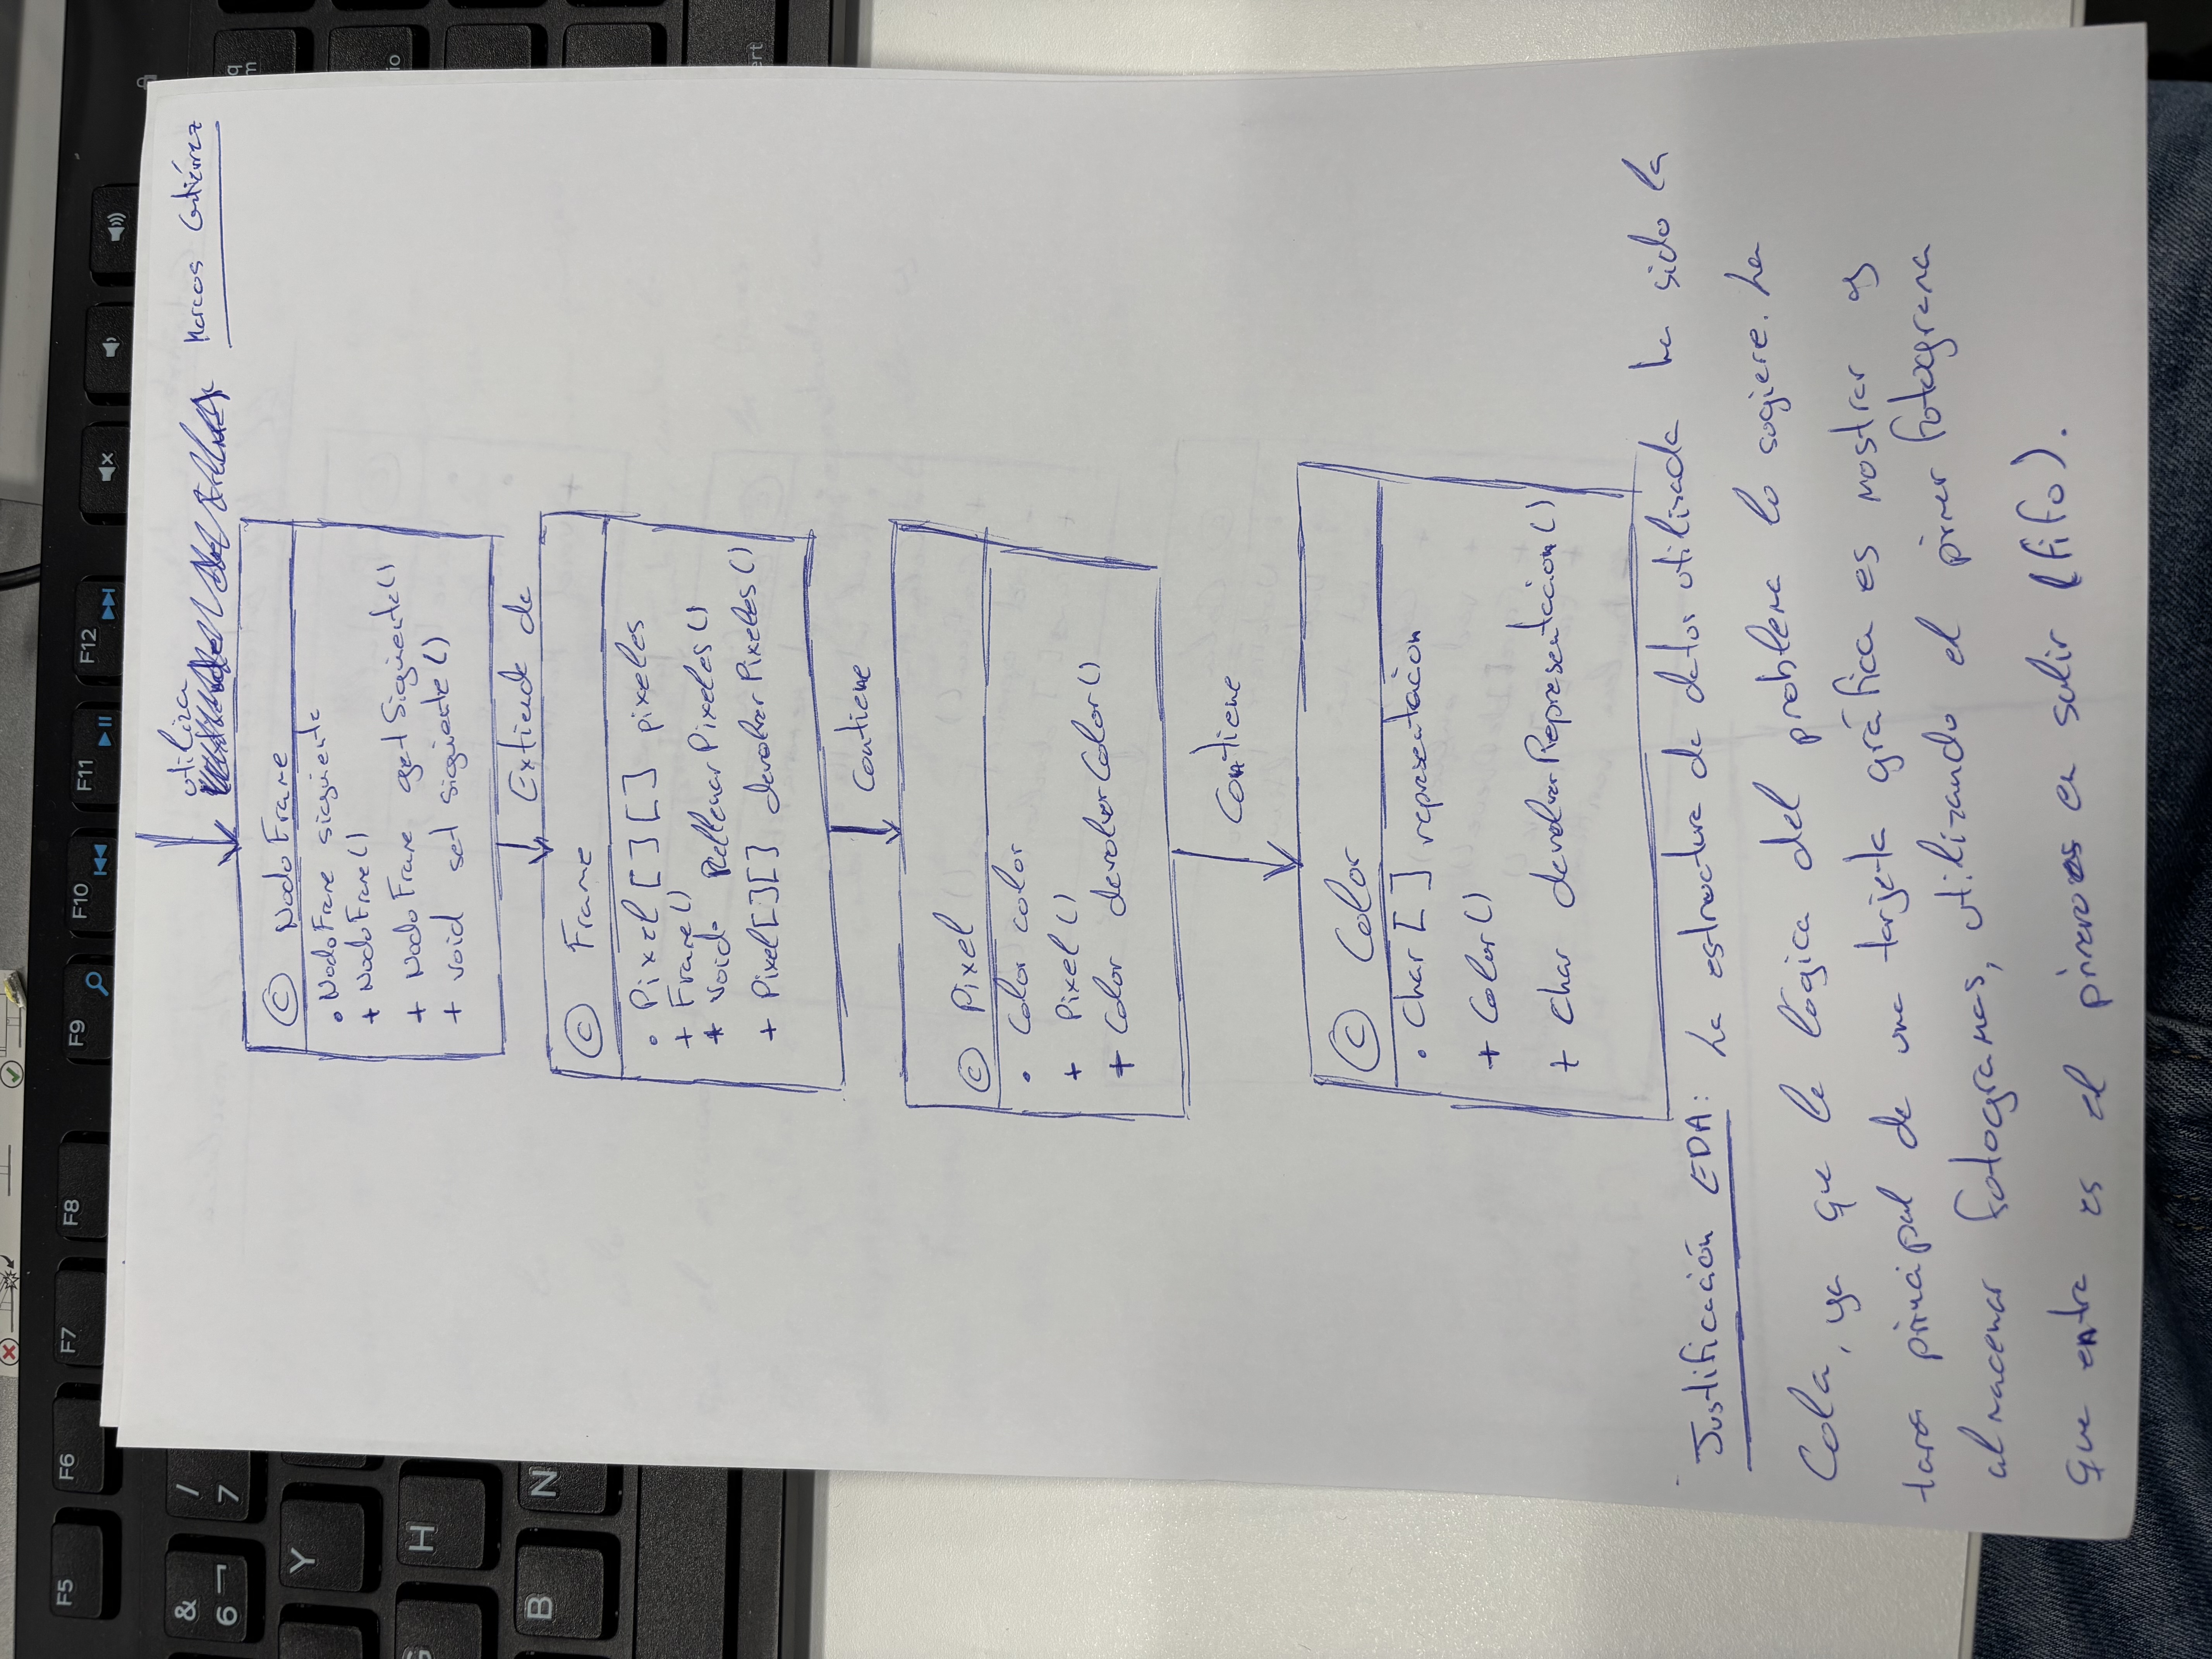 F5 F6 F7 F8 F9 F10 F11 F12
& 6 ¬ / 7
Y
G H
B N
utiliza
Marcos Gutiérrez
© NodoFrame
. NodoFrame siguiente
+ NodoFrame()
+ NodoFrame getSiguiente()
+ void set siguiente()
Extiende de
© Frame
. Pixel[][] pixeles
+ Frame()
+ void RellenarPixeles()
+ Pixel[][] devolverPixeles()
Contiene
© Pixel
. Color color
+ Pixel()
+ Color devolverColor()
Contiene
© Color
. Char[] representacion
+ Color()
+ Char devolverRepresentacion()
Justificación EDA: La estructura de datos utilizada ha sido la
Cola, ya que la lógica del problema lo sugiere. La
tarea principal de una tarjeta gráfica es mostrar y
almacenar fotogramas, utilizando el primer fotograma
que entra es el primero en salir (fifo).